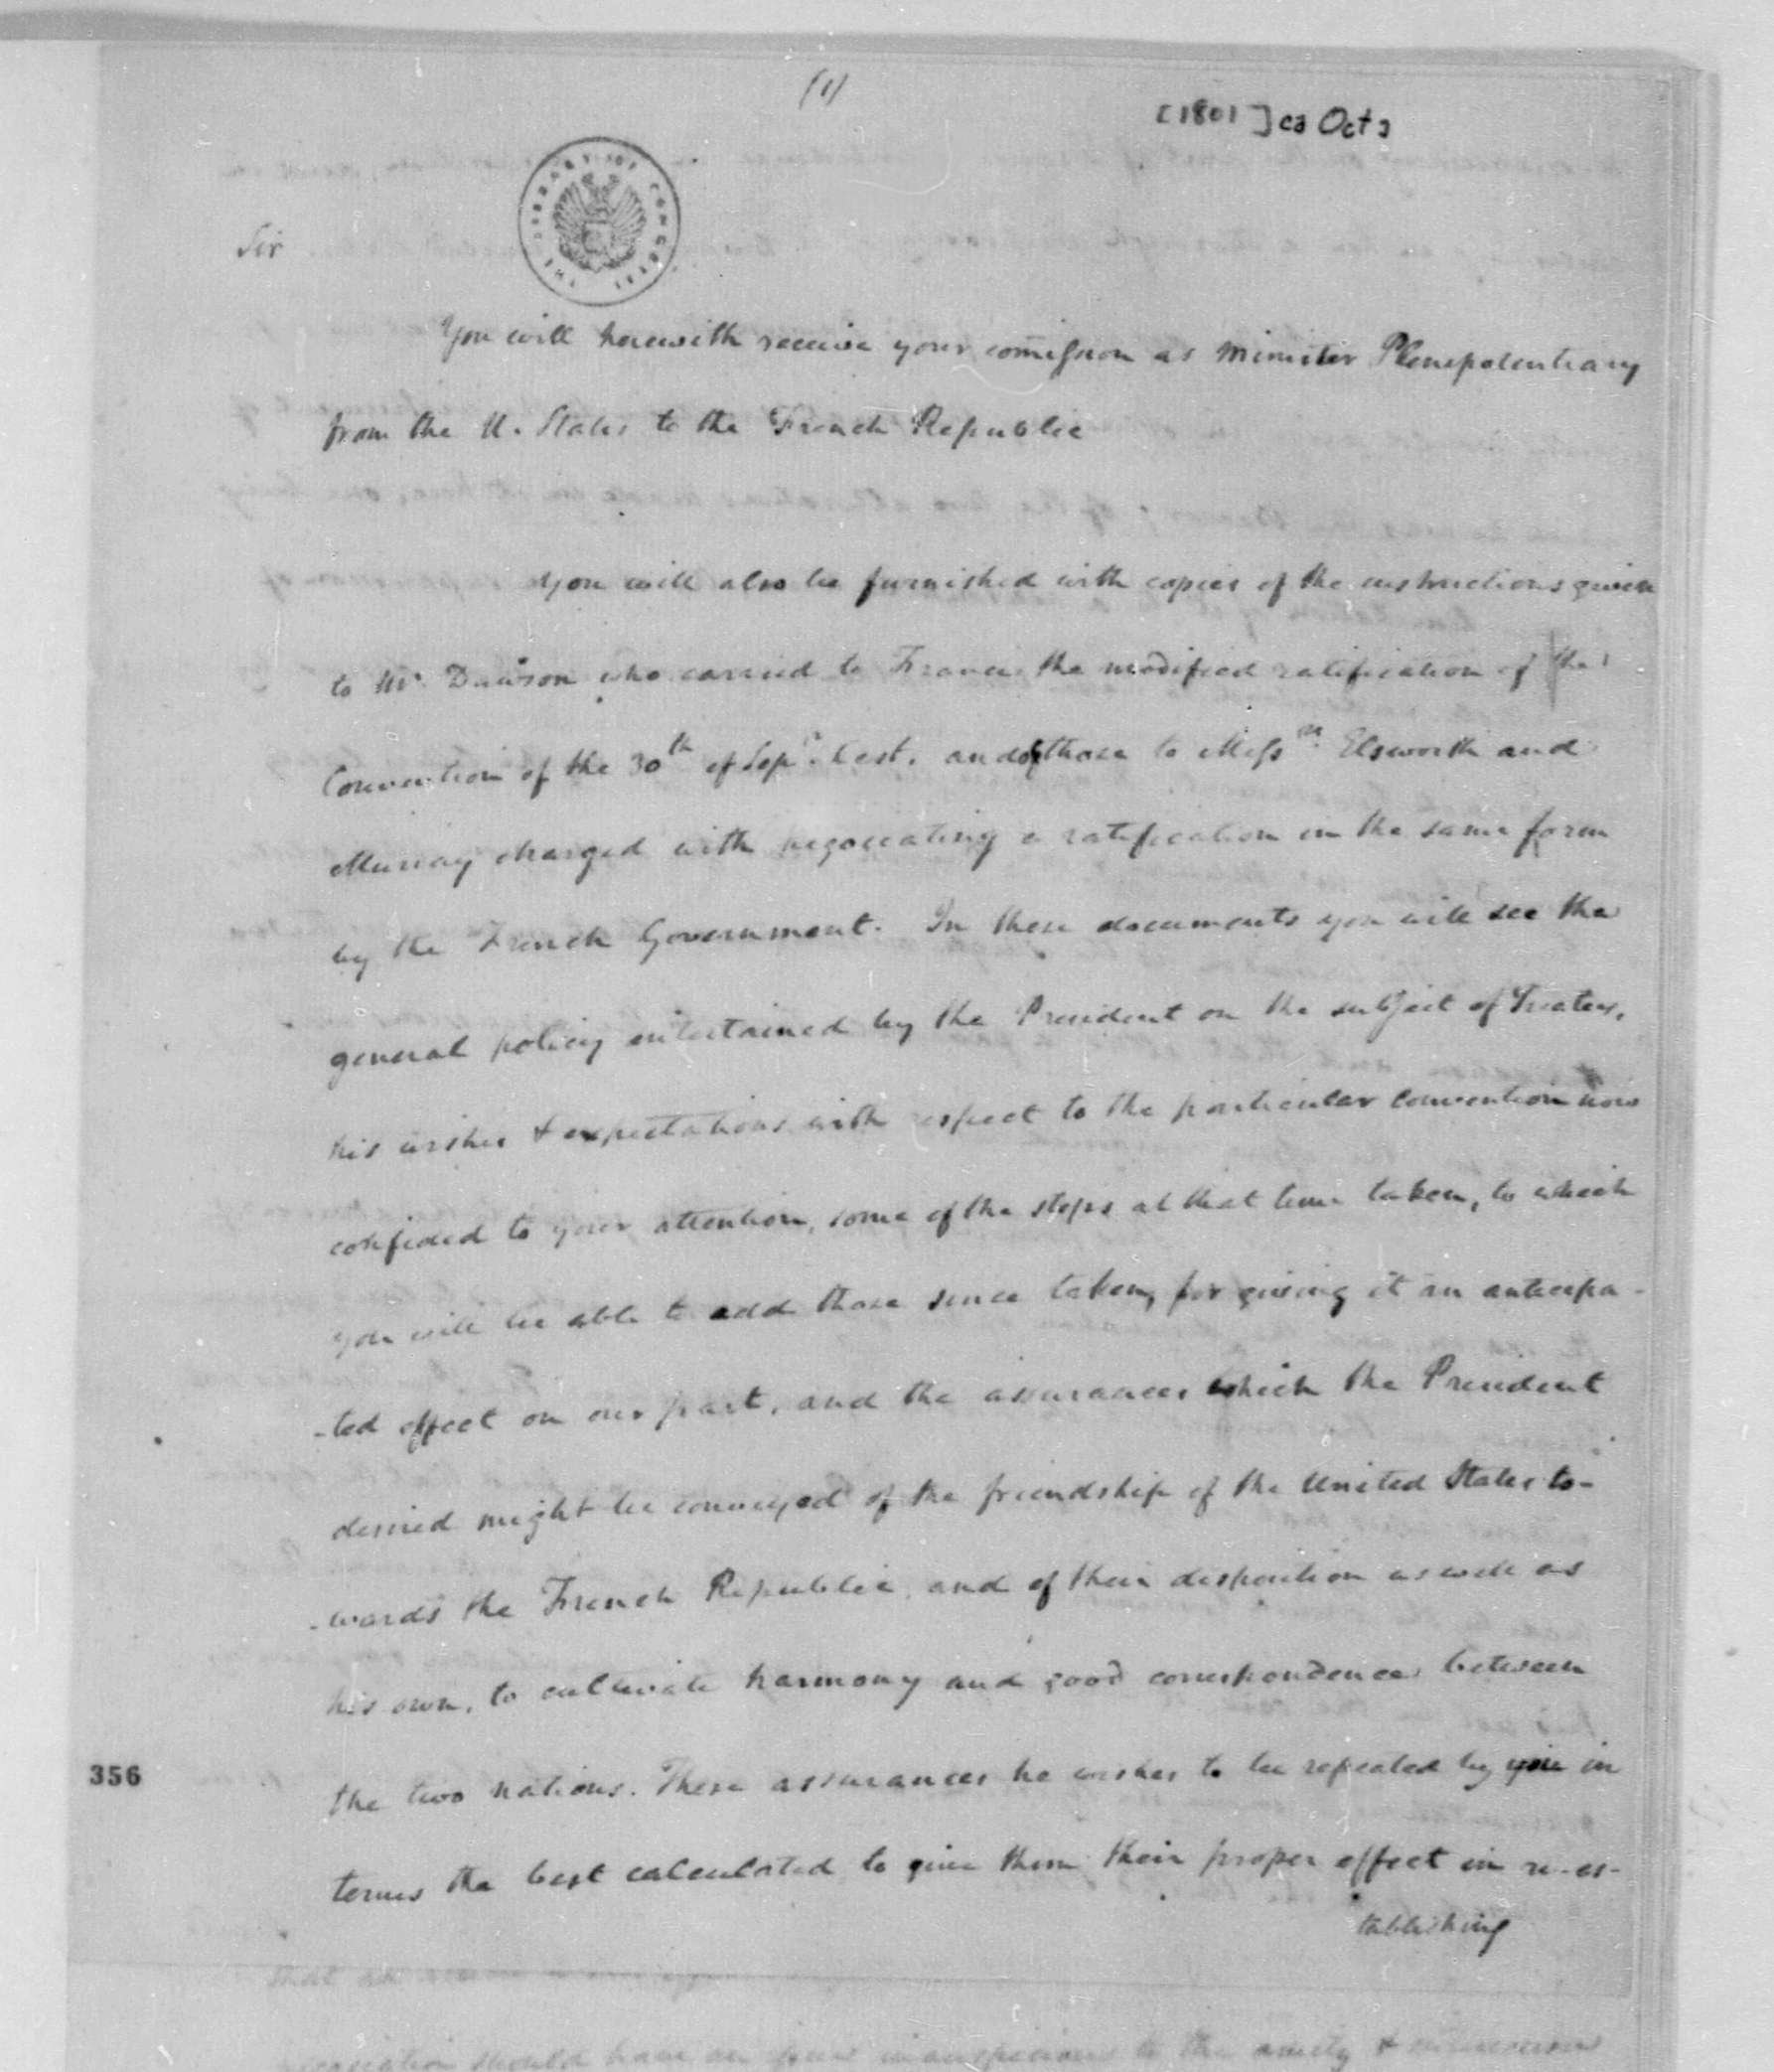 (1)
[1801] ca Oct]
THE LIBRARY OF CONGRESS
Sir
You will herewith receive your com̅ission as Minister Plenepotentiary
from the U. States to the French Republic
You will also be furnished with copies of the instructions given
to Mr. Dawson who carried to France the modified ratification of the
Convention of the 30th of Sepr. last. and of those to Messrs. Elsworth and
Murray charged with negociating a ratification in the same form
by the French Government. In these documents you will see the
general policy entertained by the President on the subject of Treaties,
his wishes & expectations with respect to the particular convention now
confided to your attention, some of the steps at that time taken, to which
you will be able to add those since taken, for giving it an anticipa-
-ted effect on our part, and the assurances which the President
desired might be conveyed of the friendship of the United States to-
-wards the French Republic, and of their disposition as well as
his own, to cultivate harmony and good correspondence between
the two nations. These assurances he wishes to be repeated by you in
356
terms the best calculated to give them their proper effect in re-es-
tablishing
that
should have an to the amity &